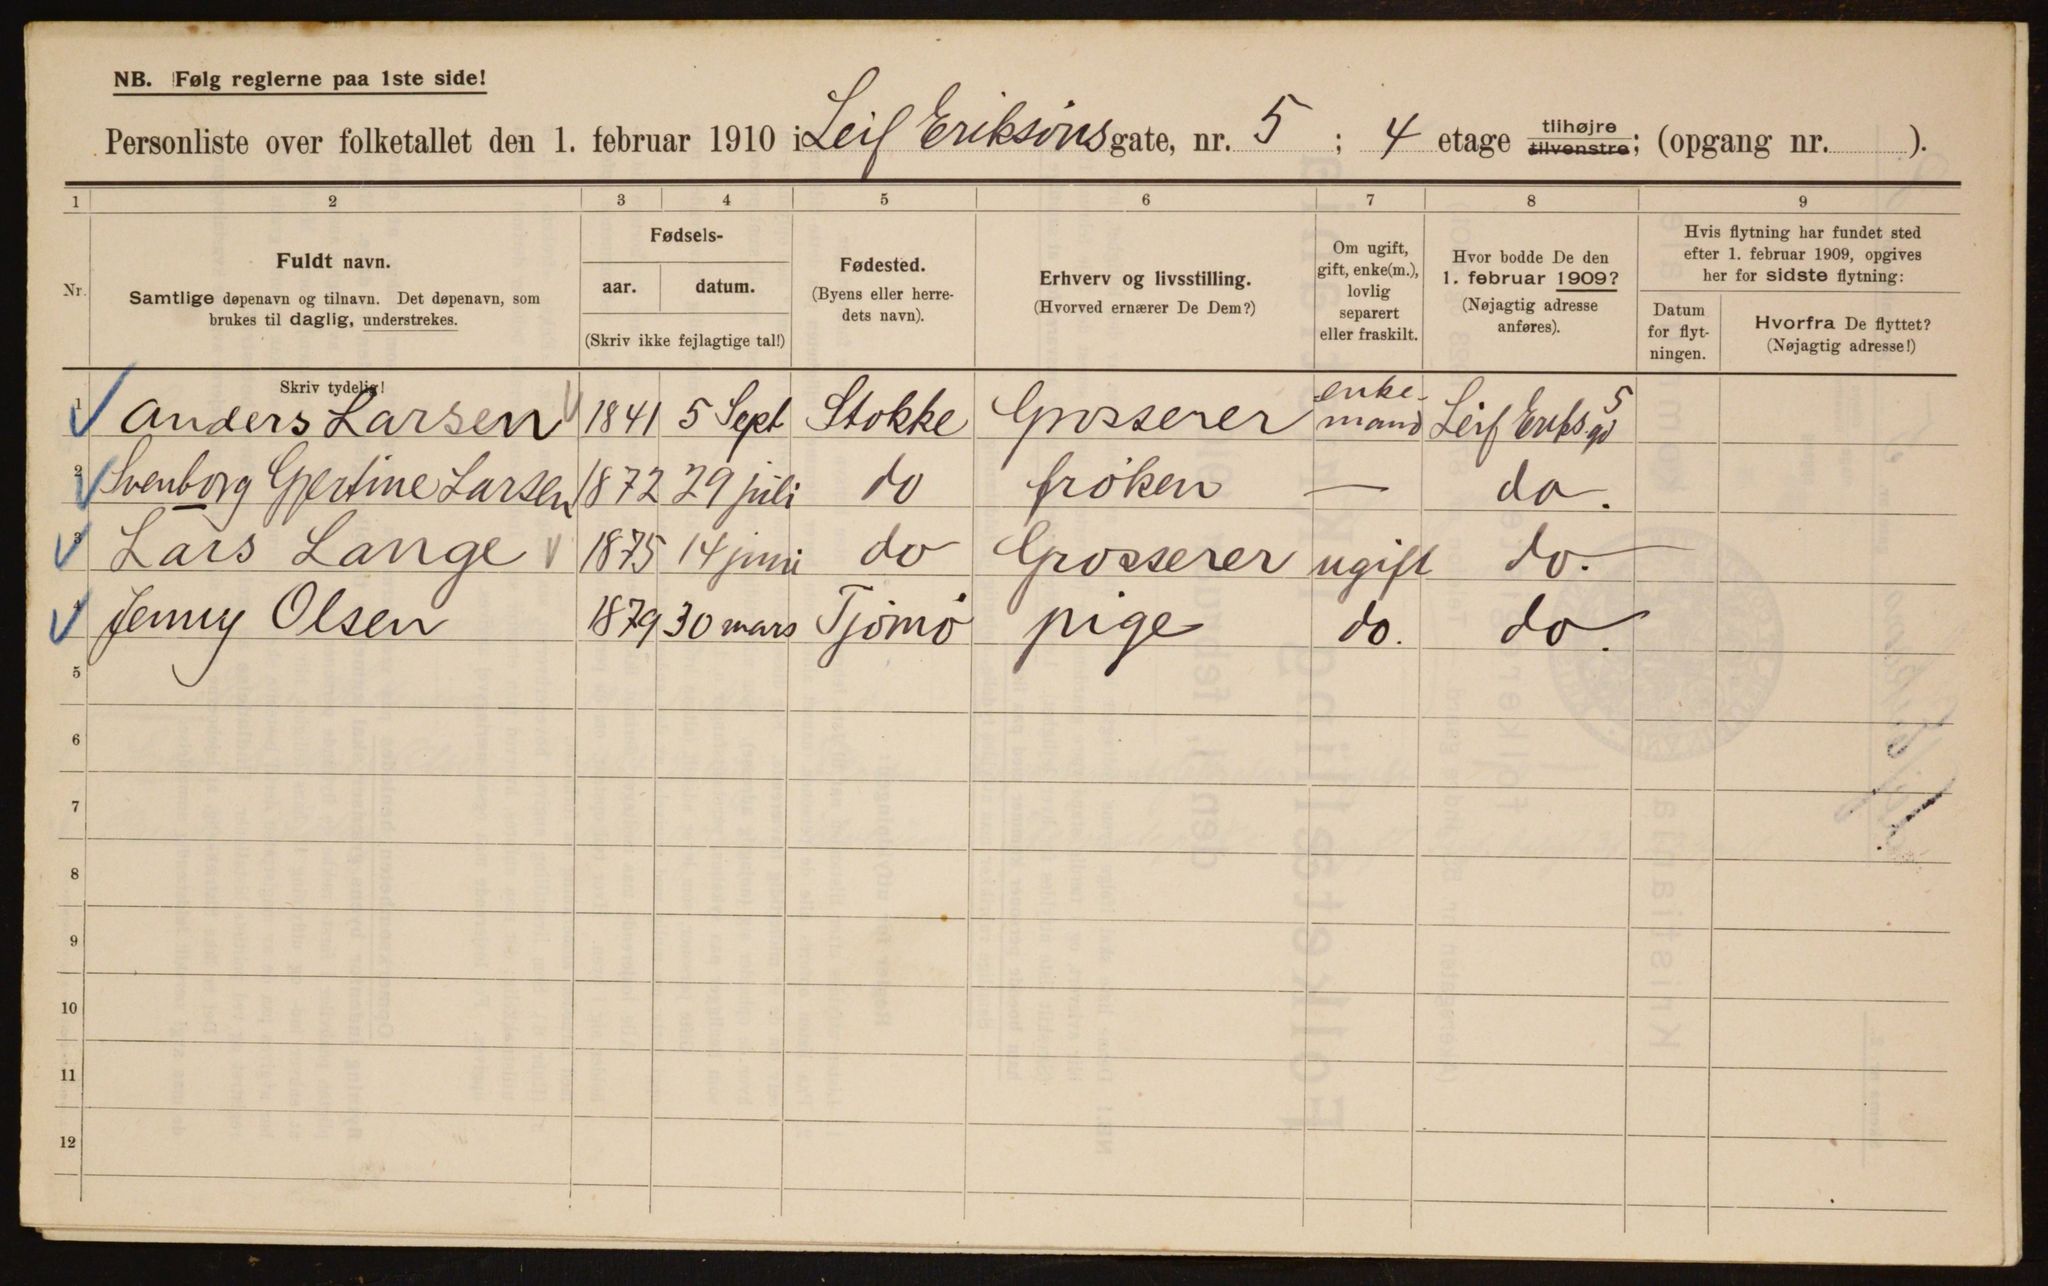 NB. Følg reglerne paa 1ste side!
Personliste over folketallet den 1. februar 1910 i Leif Eriksöns gate, nr. 5 ; 4 etage tilhøjre tilvenstre; (opgang nr. ).
1 2 3 4 5 6 7 8 9
Nr.
Fuldt navn.
Samtlige døpenavn og tilnavn. Det døpenavn, som
brukes til daglig, understrekes.
Skriv tydelig!
Fødsels-
aar. datum.
(Skriv ikke fejlagtige tal!)
Fødested.
(Byens eller herre-
dets navn).
Erhverv og livsstilling.
(Hvorved ernærer De Dem?)
Om ugift,
gift, enke(m.),
lovlig
separert
eller fraskilt.
Hvor bodde De den
1. februar 1909?
(Nøjagtig adresse
anføres).
Hvis flytning har fundet sted
efter 1. februar 1909, opgives
her for sidste flytning:
Datum
for flyt-
ningen.
Hvorfra De flyttet?
(Nøjagtig adresse!)
1 Anders Larsen 1841 5 Sept Stokke Grosserer enke-mand Leif Eriks.gd 5
2 Svenborg Gjertine Larsen 1872 29 juli do fröken — do.
3 Lars Lange 1875 14 juni do Grosserer ugift do.
4 Jenny Olsen 1879 30 mars Tjömö pige do. do.
5
6
7
8
9
10
11
12